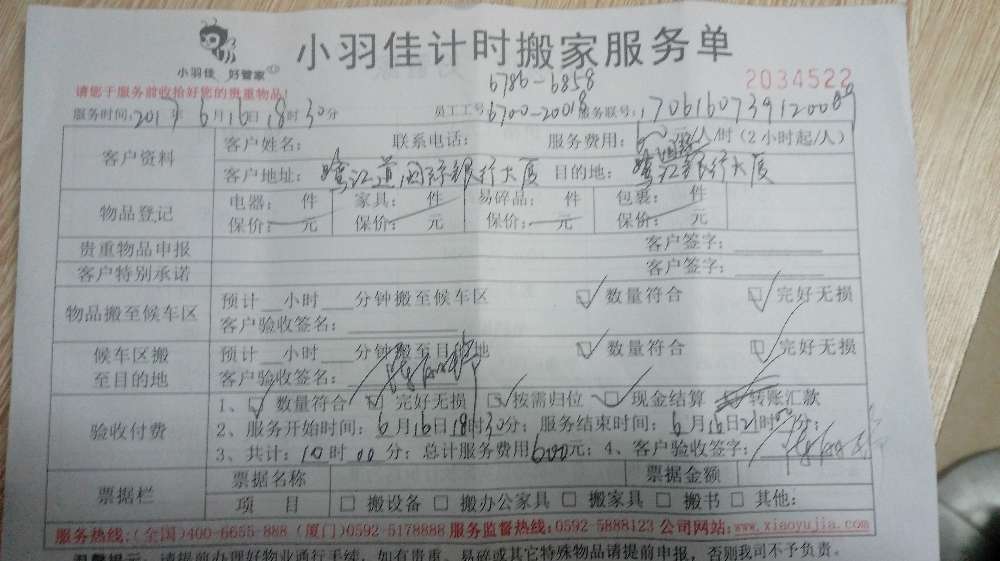 小羽佳 好管家
小羽佳计时搬家服务单
请您于服务前收拾好您的贵重物品!
6786-6858
2034522
服务时间:2017年6月16日18时30分 员工工号:6700-20018 服务联号:
客户资料
客户姓名: 联系电话: 服务费用: 元/人/时(2小时起/人)
客户地址:鹭江道国际银行大厦 目的地:鹭江道国际银行大厦
物品登记
电器: 件 家具: 件 易碎品: 件 包裹: 件
保价: 元 保价: 元 保价: 元 保价: 元
贵重物品申报 客户签字:
客户特别承诺 客户签字:
物品搬至候车区
预计 小时 分钟搬至候车区 数量符合 完好无损
客户验收签名:
候车区搬至目的地
预计 小时 分钟搬至目的地 数量符合 完好无损
客户验收签名:
验收付费
1、 数量符合 完好无损 按需归位 现金结算 转账汇款
2、服务开始时间:6月16日18时30分;服务结束时间:6月16日21时00分;
3、共计:10时00分;总计服务费用600元;4、客户验收签字:
票据栏
票据名称 票据金额
项 目 □搬设备 □搬办公家具 □搬家具 □搬书 □其他:
服务热线:(全国)400-6655-888 (厦门)0592-5178888 服务监督热线:0592-5888123 公司网站:www.xiaoyujia.com
温馨提示:请提前办理好物业通行手续,如有贵重、易碎或其它特殊物品请提前申报,否则我司不予负责。